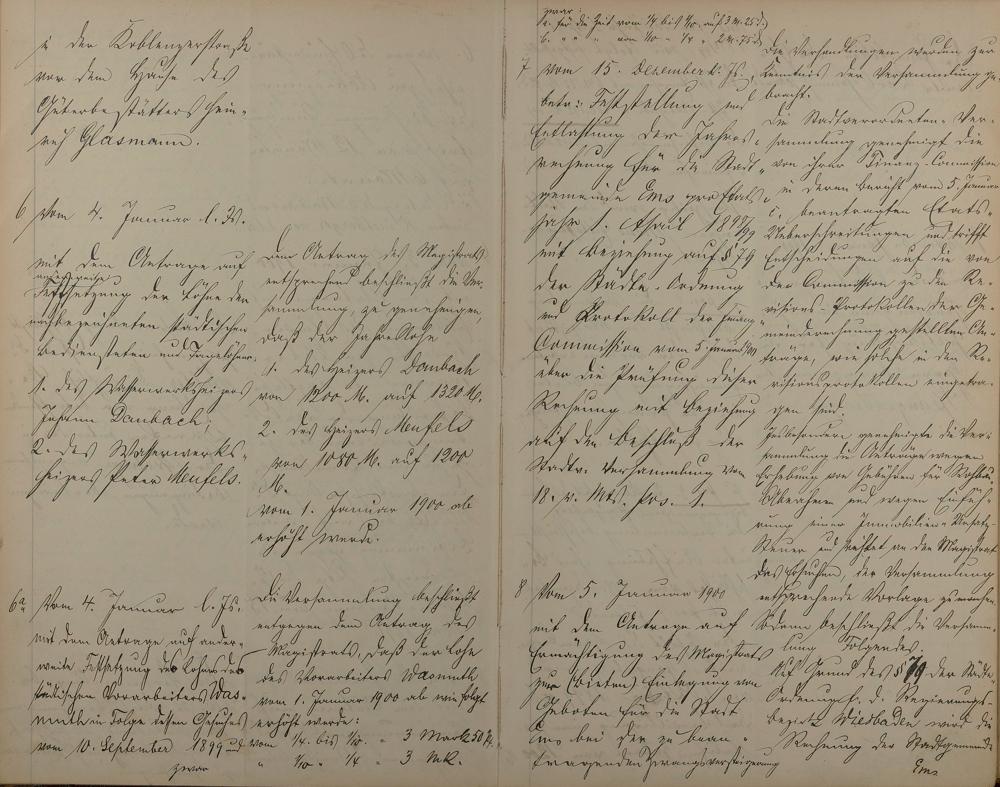 in der Koblenzerstraße
vor dem Hause des
Güterbestätters Hein-
rich Glasmann.
6 Vom 4. Januar l. Js.
mit dem Antrage auf
anderweite
Festsetzung der Löhne der
nachbezeichneten städtischen
Bediensteten und Tagelöhner
1. des Wasserwerksheizers
Johann Daubach,
2. des Wasserwerks-
heizers Peter Meufels.
Dem Antrag des Magistrats
entsprechend beschließt die Ver-
sammlung, zu genehmigen,
daß der Jahreslohn
1. des Heizers Daubach
von 1200 M. auf 1320 M.
2. des Heizers Meufels
von 1080 M. auf 1200
M.
vom 1. Januar 1900 ab
erhöht werde.
6a Vom 4. Januar l. Js.
mit dem Antrage auf ander-
weite Festsetzung des Lohnes des
städtischen Vorarbeiters Was-
muth in Folge dessen Gesuches
vom 10. September 1899 und
zwar
Die Versammlung beschließt
entgegen dem Antrag des
Magistrats, daß der Lohn
des Vorarbeiters Wasmuth
vom 1. Januar 1900 ab wie folgt
erhöht werde:
vom 1/4. bis 1/10. " 3 Mark 50 Pf.
" 1/10 " 1/4 " 3 Mk.
zwar:
a. für die Zeit vom 1/4 bis 1/10. auf 3 M. 25 d.
b. " " " von 1/10 " 1/4 " 2 M. 75 d.
7 Vom 15. Dezember v. Js.,
betr: Feststellung und
Entlastung der Jahres-
rechnung für die Stadt-
gemeinde Ems pro Etats-
jahr 1. April 1898/99
mit Beziehung auf § 79
der Städte-Ordnung
und Protokoll der Finanz-
Commission vom 5. Januar 1900
über die Prüfung dieser
Rechnung mit Beziehung
auf den Beschluß der
Stadtv. Versammlung vom
18. v. Mts. Pos. 1.
Die Verhandlungen werden zur
Kenntnis der Versammlung ge-
bracht.
Die Stadtverordneten-Ver-
sammlung genehmigt die
von ihrer Finanz-Commission
in deren Bericht vom 5. Januar
c. beantragten Etats-
Ueberschreitungen und trifft
Entscheidungen auf die von
der Commission zu den Re-
visions-Protokollen der Ge-
meinderechnung gestellten An-
träge, wie solche in den Re-
visionsprotokollen eingetra-
gen sind.
Insbesondere genehmigte die Ver-
sammlung die Anträge wegen
Erhebung von Gebühren für Rohbau-
Abnahmen und wegen Einfüh-
rung einer Immobilien-Umsatz-
Steuer und richtet an den Magistrat
das Ersuchen, der Versammlung
entsprechende Vorlage zu machen.
Sodann beschließt die Versamm-
lung Folgendes.
Auf Grund des § 79 der Städte-
Ordnung f. d. Regierungs-
bezirk Wiesbaden wird die
Rechnung der Stadtgemeinde
Ems
8 Vom 5. Januar 1900
mit dem Antrage auf
Ermächtigung des Magistrats
zur (bieten) Einlegung von
Geboten für die Stadt
Ems bei der zu bean-
tragenden Zwangsversteigerung